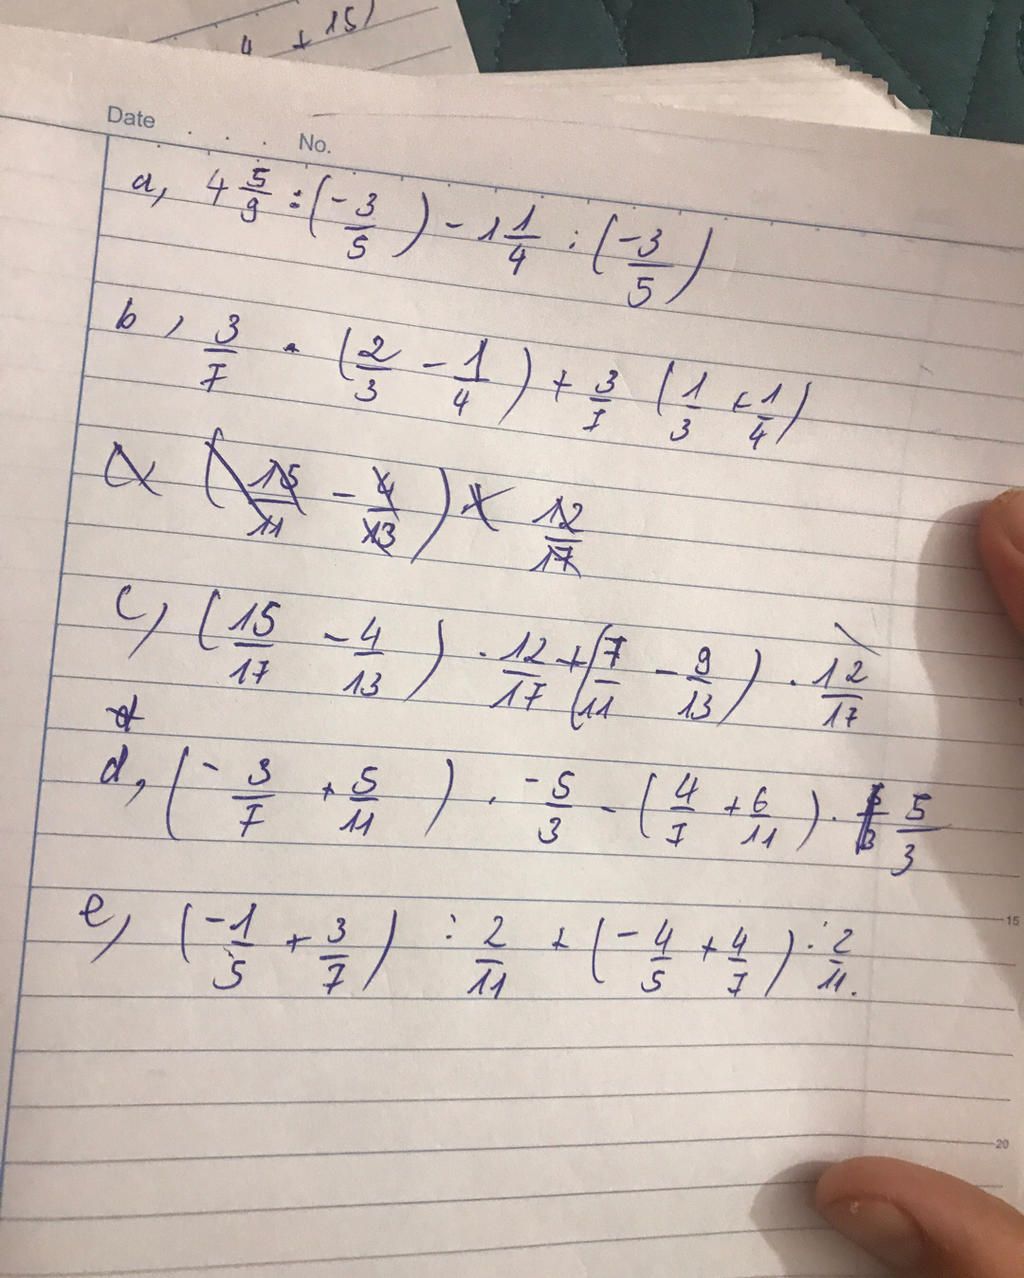 4 + 15)
Date No.
a, 4 5/9 : (-3/5) - 1 1/4 : (-3/5)
b, 3/7 . (2/3 - 1/4) + 3/7 (1/3 + 1/4)
(15/11 - 4/13) x 12/17
c, (15/17 - 4/13) . 12/17 + (7/11 - 9/13) . 12/17
d
d, (-3/7 + 5/11) . -5/3 - (4/7 + 6/11) . 5/3
e, (-1/5 + 3/7) : 2/11 + (-4/5 + 4/7) : 2/11.
15
20